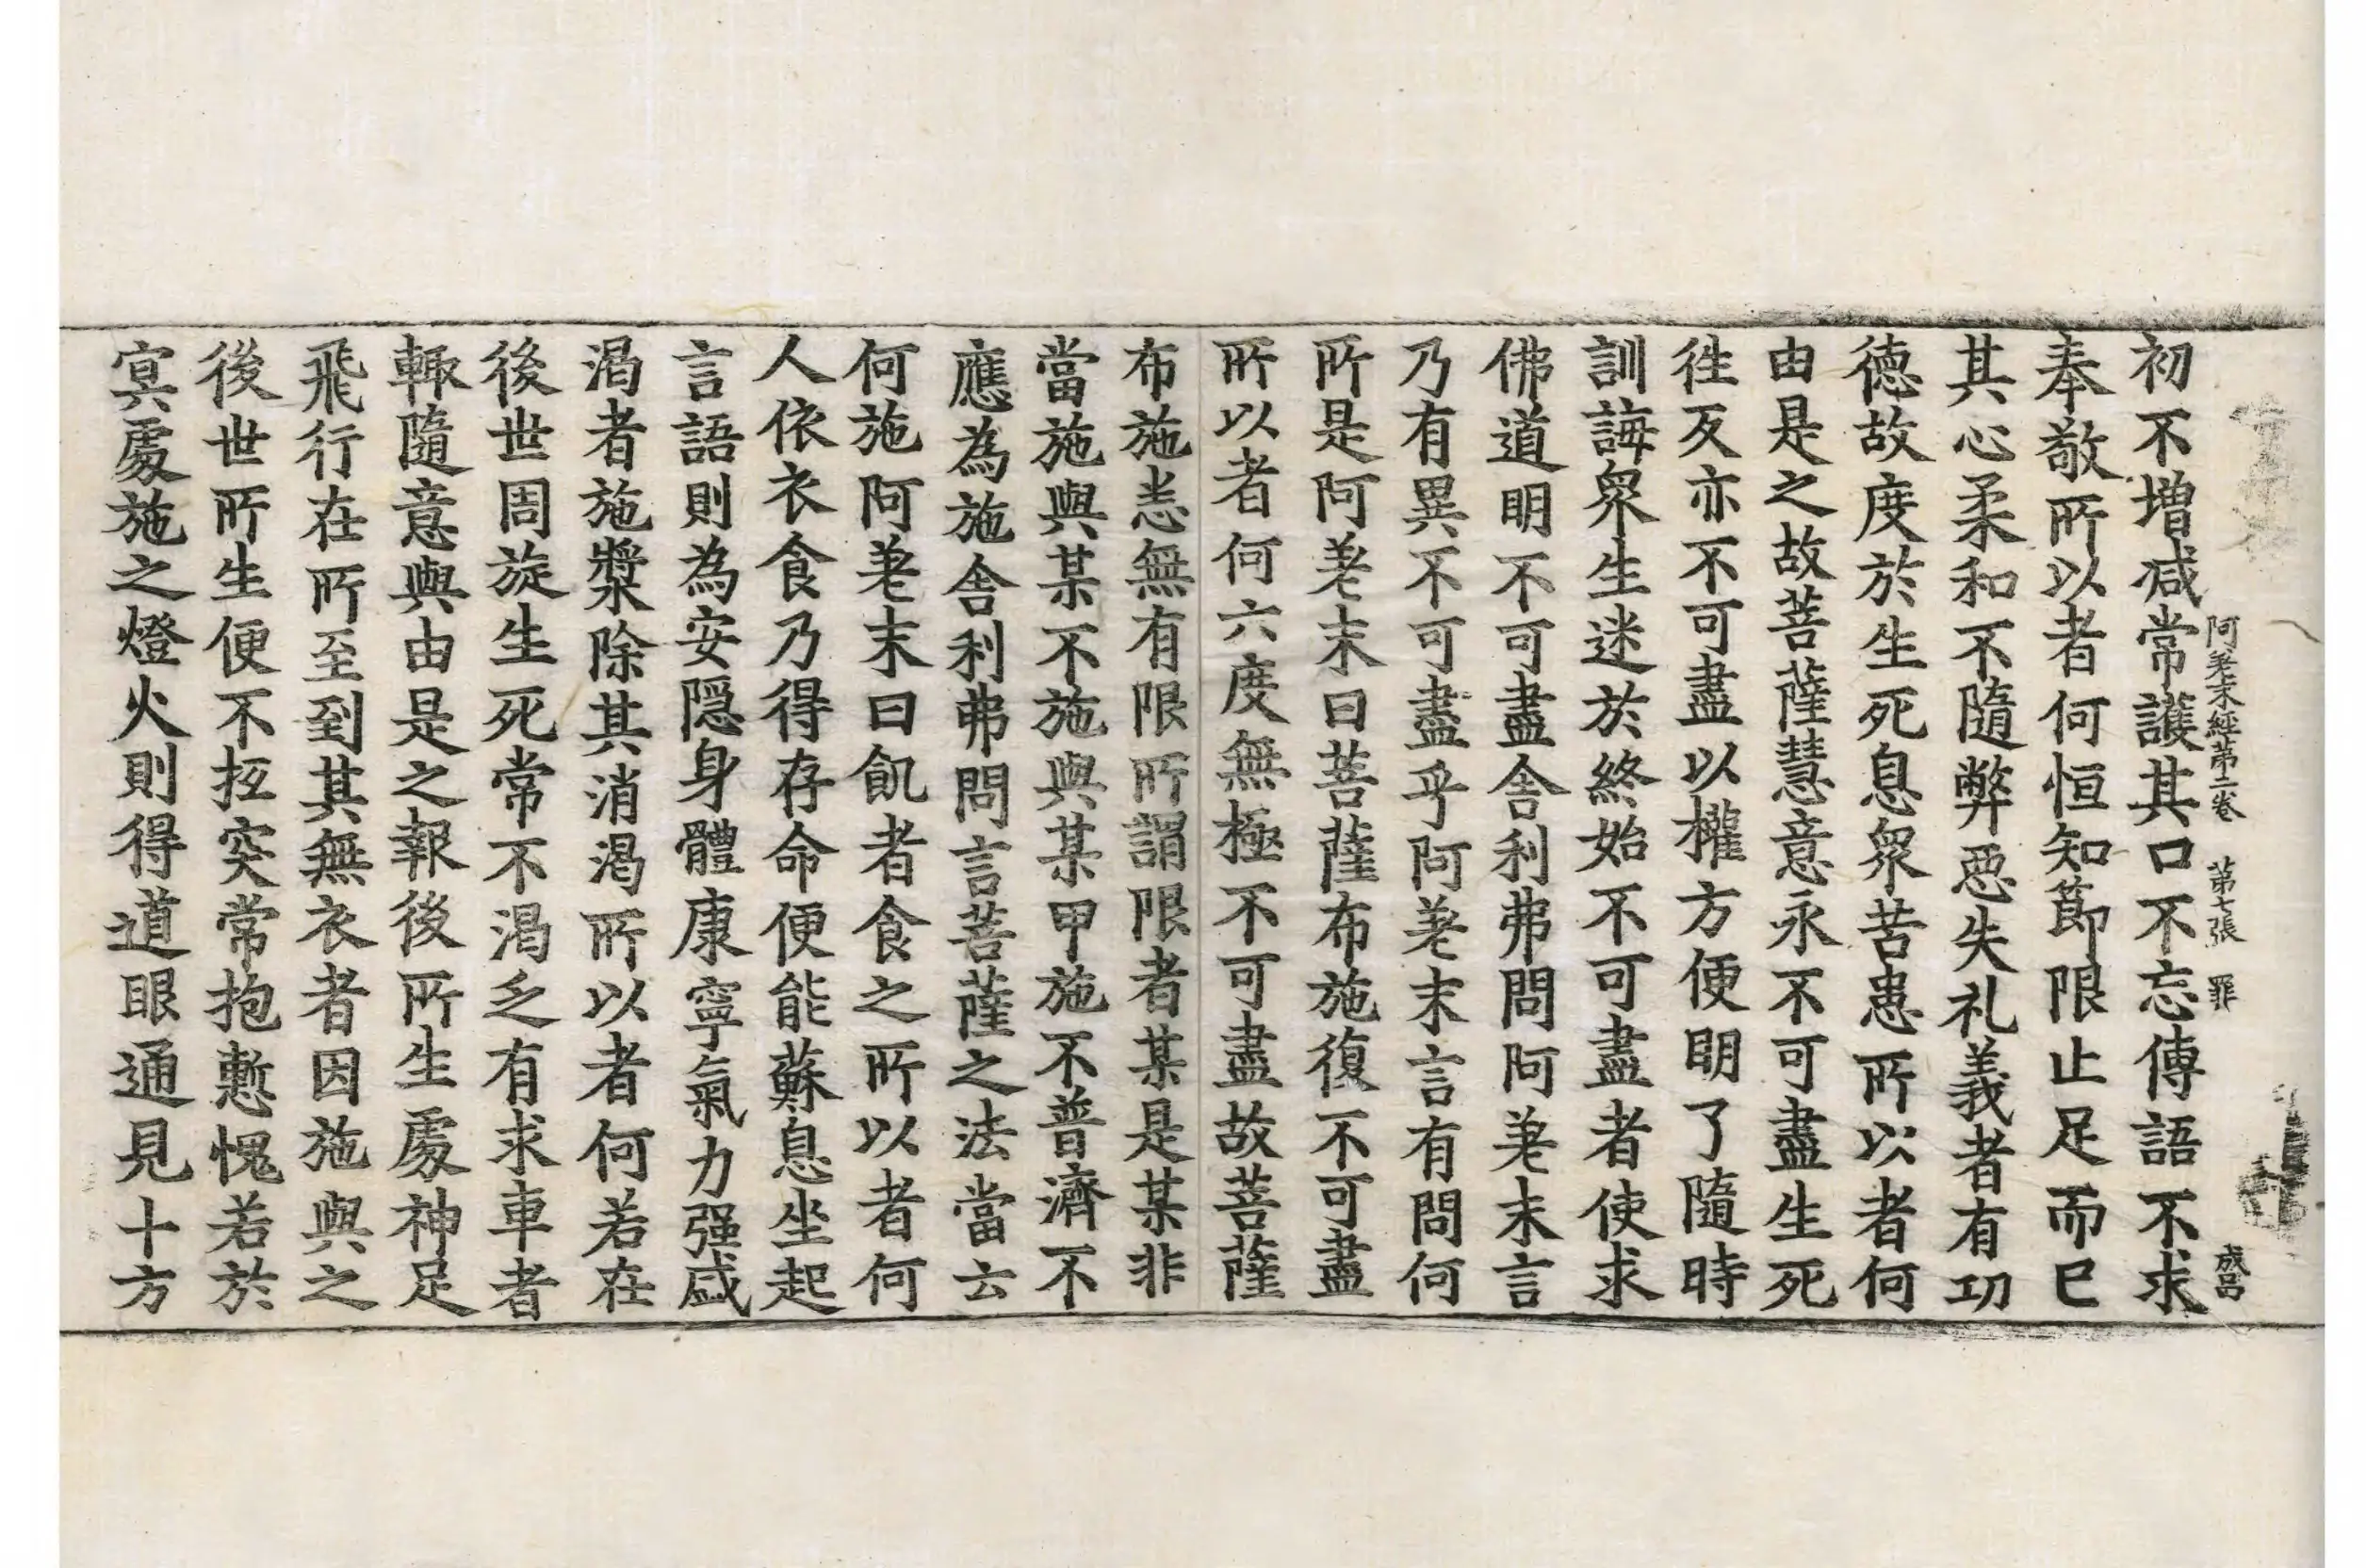 阿差末經第二卷 第七張 罪 成呂
初不增减常護其口不忘傳語不求
奉敬所以者何恒知節限止足而已
其心柔和不隨弊惡失礼義者有功
德故度於生死息衆苦患所以者何
由是之故菩薩慧意永不可盡生死
徃反亦不可盡以權方便明了隨時
訓誨衆生迷於終始不可盡者使求
佛道明不可盡舍利弗問阿差末言
乃有異不可盡乎阿差末言有問何
所是阿差末曰菩薩布施復不可盡
所以者何六度無極不可盡故菩薩
布施恙無有限所謂限者某是某非
當施與某不施與某甲施不普濟不
應為施舍利弗問言菩薩之法當云
何施阿差末曰飢者食之所以者何
人依衣食乃得存命便能蘇息坐起
言語則為安隱身體康寧氣力强盛
渴者施漿除其消渴所以者何若在
後世周旋生死常不渴乏有求車者
輙隨意與由是之報後所生處神足
飛行在所至到其無衣者因施與之
後世所生便不抂突常抱慙愧若於
冥處施之燈火則得道眼通見十方